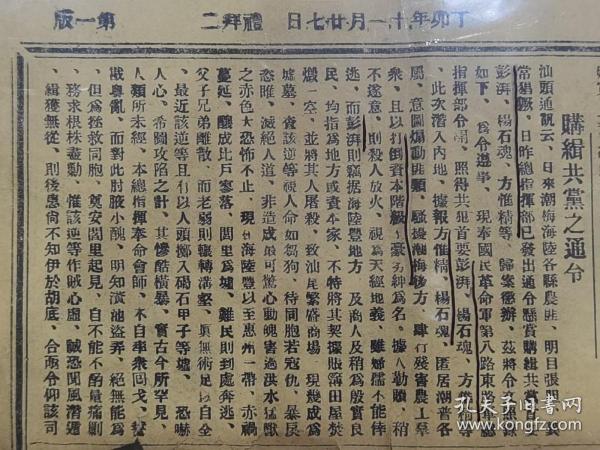 丁卯年十一月廿七日　禮拜二　第一版
購緝共黨之通令
汕頭通訊云、日來潮梅海陸各縣農匪、明目張胆、
常猖獗、日昨總指揮部已發出通令懸賞購緝共黨首
彭湃、楊石魂、方惟精等、歸案懲辦、茲將令文照錄
如下、爲令遵事、現奉國民革命軍第八路東路軍總
指揮部令開、照得共犯首要彭湃、楊石魂、方惟精等
、此次潛入內地、據報方惟精、楊石魂、匿居潮普各
屬、意圖煽動匪類、騷擾潮梅後方、肆行殘害農工羣
衆、且以打倒資本階級土豪劣紳爲名、據人勒贖、稍
不遂意、則殺人放火、視爲天經地義、雖婦孺不能倖
逃、而彭湃則竄據海陸豐地方、及商人及稍爲殷實良
民、均指爲地方或資本家、不特將其契據賬簿田屋焚
燬一空、並將其人屠殺、致汕尾繁盛商塲、現幾成爲
墟墓、查該逆等視人命如芻狗、待同胞若寇仇、暴戾
恣睢、滅絕人道、非造成最可驚心動魄害過洪水猛獸
之赤色大恐怖不止、現海陸豐以至惠州一帶、赤禍
蔓延、釀成比戶寥落、閭里爲墟、難民則到處奔逃、
父子兄弟離散、而老弱則輾轉溝壑、眞無術足以自全
、最近該逆等且有以人頭擲入碣石甲子等墟、恐嚇
人心、希圖攻陷之計、其慘酷橫暴、實古今所罕見、
人類所未經、本總指揮奉命會師、不自率衆囘戈、
戡粵亂、而對此肘腋小醜、明知潢池盜弄、絕無能爲
、但爲拯救同胞、奠安閭里起見、自不能不酌量痛剿
、務求根株盡動、惟該逆等作賊心虛、誠恐聞風潛遁
、緝獲無從、則後患尙不知伊於胡底、合亟令仰該司
孔夫子旧书网